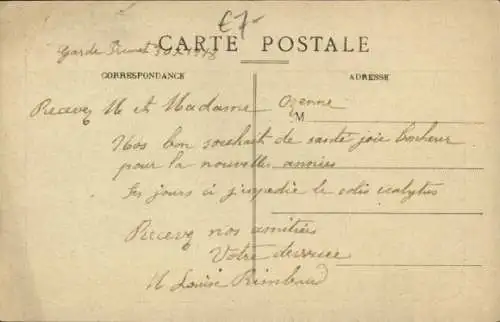 €7-
CARTE POSTALE
Garde Freinet 30 X 1918
CORRESPONDANCE
ADRESSE
Recevez M et Madame Ozenne
M
Nos bon souhait de santé joie bonheur
pour la nouvelle années
Ses jours ci j'expedie le colis ecalyptus
Recevez nos amitiés
Votre
M Louise Rimbaud